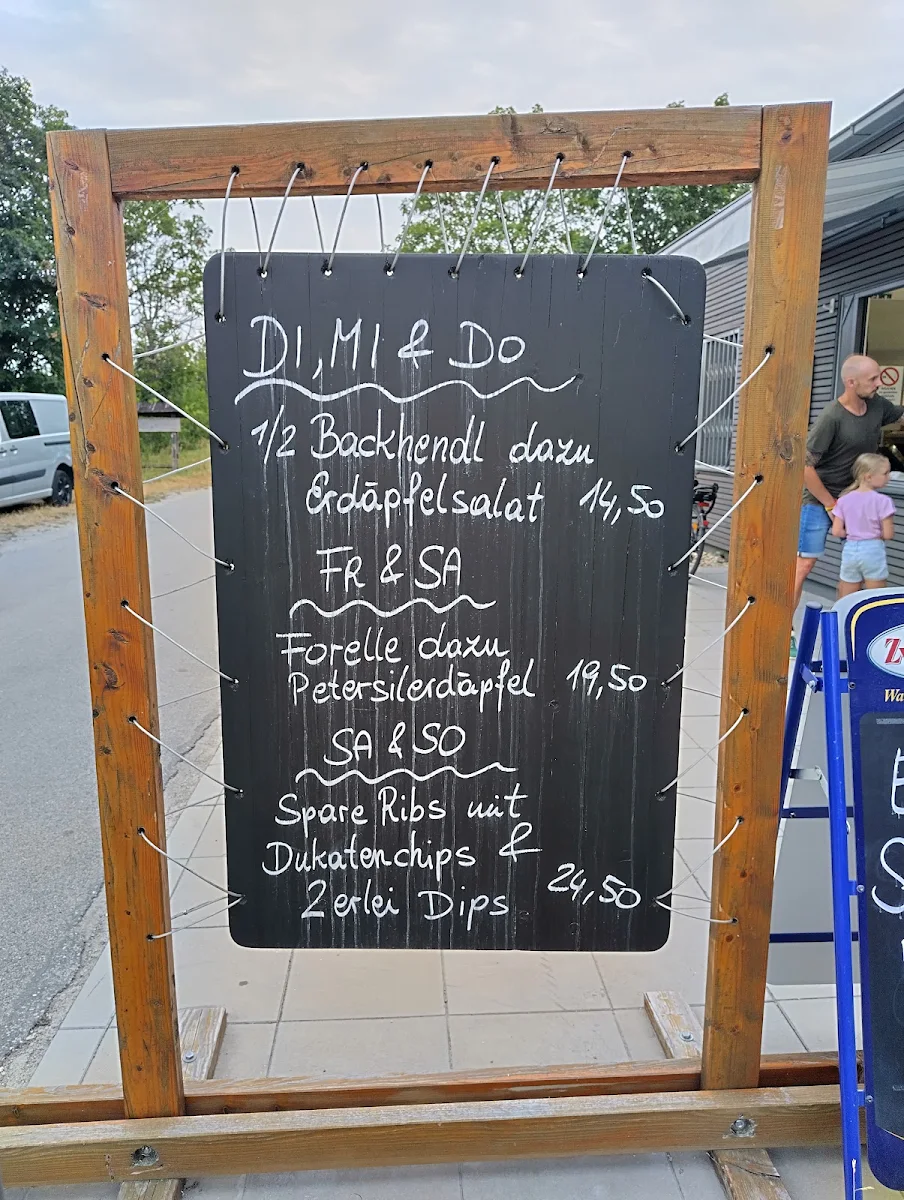 DI, MI & DO
1/2 Backhendl dazu
Erdäpfelsalat 14,50
FR & SA
Forelle dazu
Petersilerdäpfel 19,50
SA & SO
Spare Ribs mit
Dukatenchips &
2erlei Dips 24,50